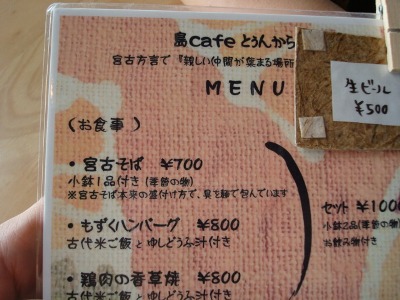 島cafe とぅんから
宮古方言で『親しい仲間が集まる場所
MENU
生ビール
¥500
(お食事)
• 宮古そば ¥700
小鉢1品付き (季節の物)
※宮古そば本来の盛付け方で、具を麺で包んでいます
• もずくハンバーグ ¥800
古代米ご飯 と ゆしどうふ汁付き
• 鶏肉の香草焼 ¥800
古代米ご飯 と ゆしどうふ汁付き
セット ¥1000
小鉢2品(季節の物)
お飲み物付き